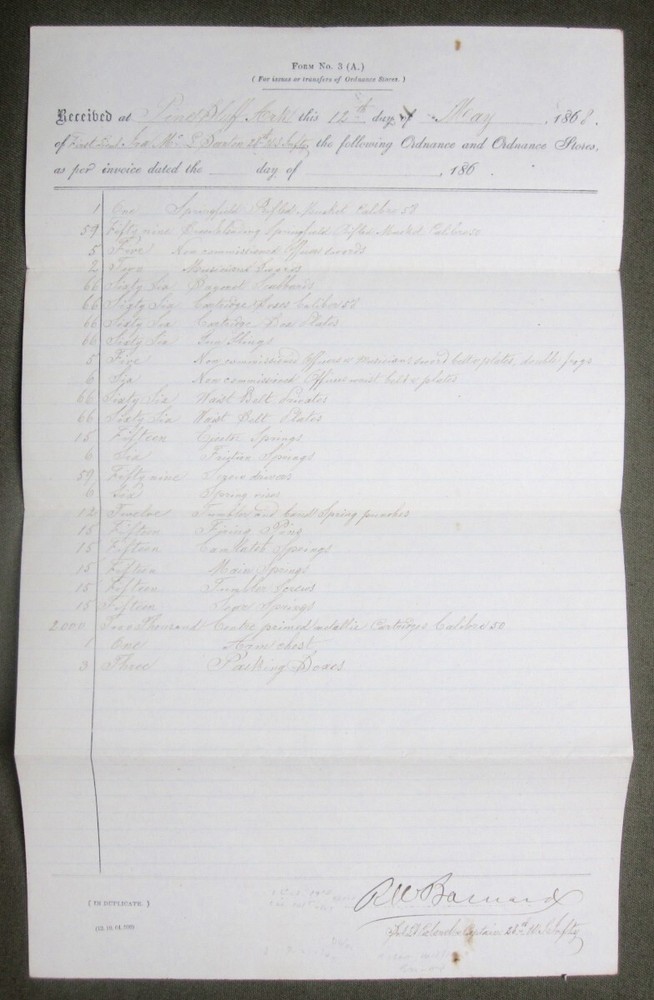 Form No. 3 (A.)
( For issues or transfers of Ordnance Stores. )
Received at Pine Bluff Ark this 12th day of May , 1868.
of First Lieut W. Barton 28th U.S. Infty the following Ordnance and Ordnance Stores,
as per invoice dated the day of , 186 .
1 One Springfield Rifled Musket Calibre 58
59 Fifty nine Breechloading Springfield Rifled Musket Calibre 50
5 Five Non commissioned Officers swords
2 Two Musicians Swords
66 Sixty Six Bayonet Scabbards
66 Sixty Six Cartridge Boxes Calibre 58
66 Sixty Six Cartridge Box Plates
66 Sixty Six Gun Slings
5 Five Non commissioned Officers & Musicians sword belts & plates, double frogs
6 Six Non commissioned Officers waist belts & plates
66 Sixty Six Waist Belt privates
66 Sixty Six Waist Belt Plates
15 Fifteen Ejector Springs
6 Six Friction Springs
59 Fifty nine Screw drivers
6 Six Spring vices
12 Twelve Tumbler and band Spring punches
15 Fifteen Firing Pins
15 Fifteen Cam Latch Springs
15 Fifteen Main Springs
15 Fifteen Tumbler Screws
15 Fifteen Sear Springs
2.000 Two Thousand Centre primed metallic Cartridges Calibre 50
1 One Arm chest
3 Three Packing Boxes
( IN DUPLICATE. )
R W Barnard
Captain 28th U.S. Infty